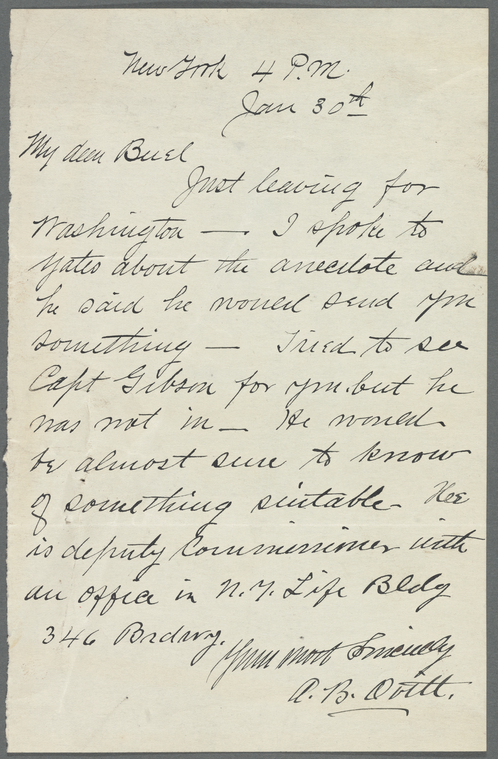 New York 4 P.M.
Jan 30th
My dear Buel
Just leaving for
Washington — I spoke to
Yates about the anecdote and
he said he would send you
something — Tried to see
Capt Gibson for you but he
was not in — He would
be almost sure to know
of something suitable. Hee
is deputy Commissioner with
an office in N.Y. Life Bldg
346 Brdwy.
Yours most Sincerely
A. B.